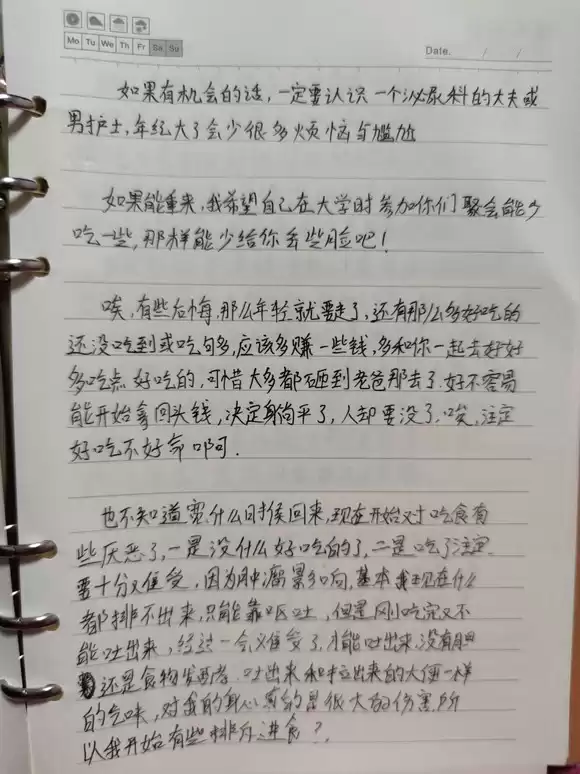 Mo Tu We Th Fr Sa Su
Date. / /
如果有机会的话,一定要认识一个泌尿科的大夫或
男护士,年纪大了会少很多烦恼与尴尬
如果能重来,我希望自己在大学时参加你们聚会能少
吃一些,那样能少给你丢些脸吧!
唉,有些后悔,那么年轻就要走了,还有那么多好吃的
还没吃到或吃够多,应该多赚一些钱,多和你一起去好好
多吃点好吃的,可惜大多都砸到老爸那去了.好不容易
能开始拿回头钱,决定躺平了,人却要没了.唉,注定
好吃不好命啊.
也不知道 什么时候回来,现在开始对吃食有
些厌恶了,一是没什么好吃的了,二是吃了注定
要十分难受,因为肿瘤影响,基本我现在什么
都排不出来,只能靠呕吐,但是刚吃完又不
能吐出来,经过一会难受了,才能吐出来,没有胆
还是食物发酵 吐出来和拉出来的大便一样
的气味,对我的身心真的是很大的伤害,所
以我开始有些排斥进食?